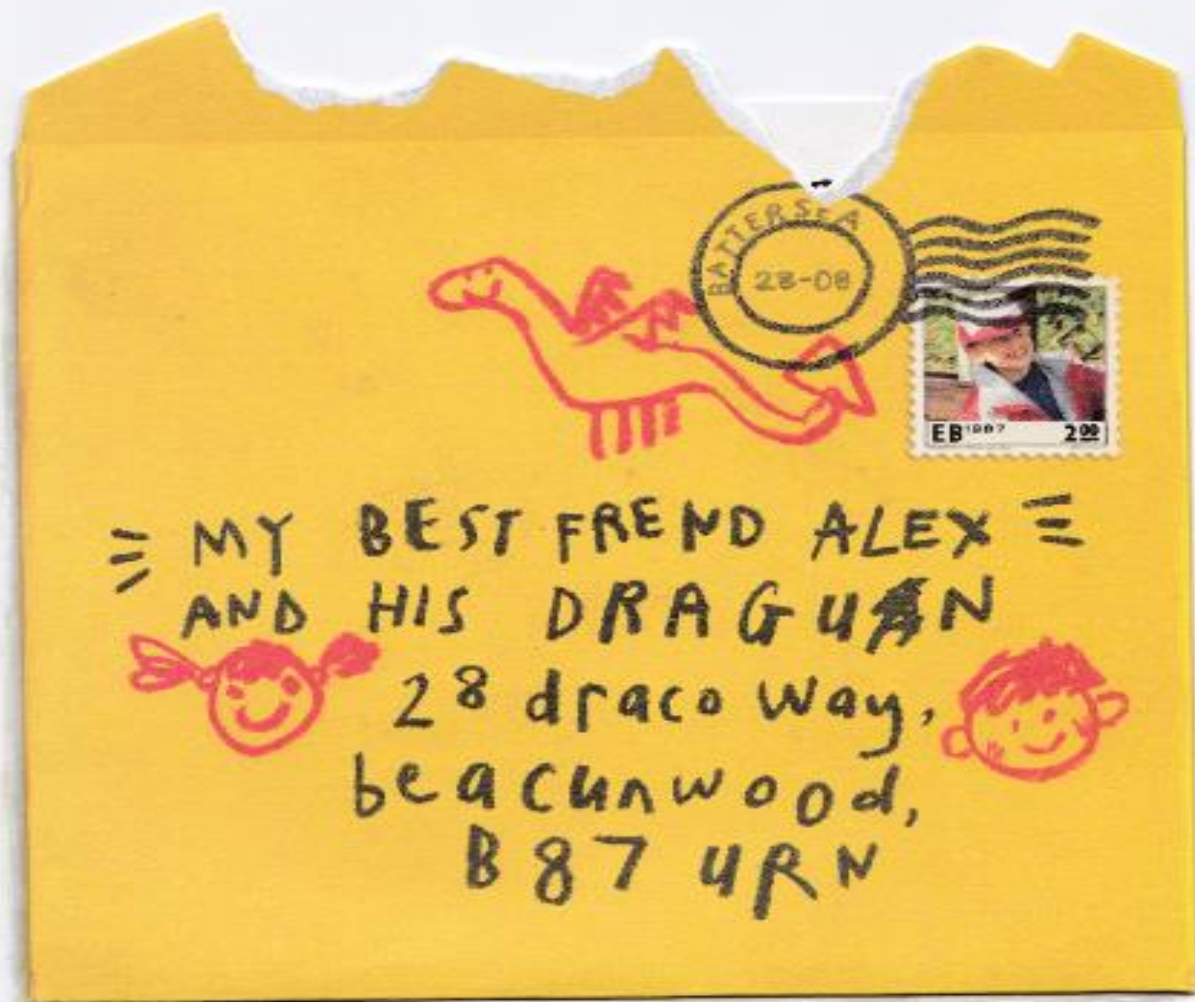 BATTERSEA
28-08
EB 1987 2.00
MY BEST FREND ALEX
AND HIS DRAGUN
28 draco way,
beacunwood,
B87 URN